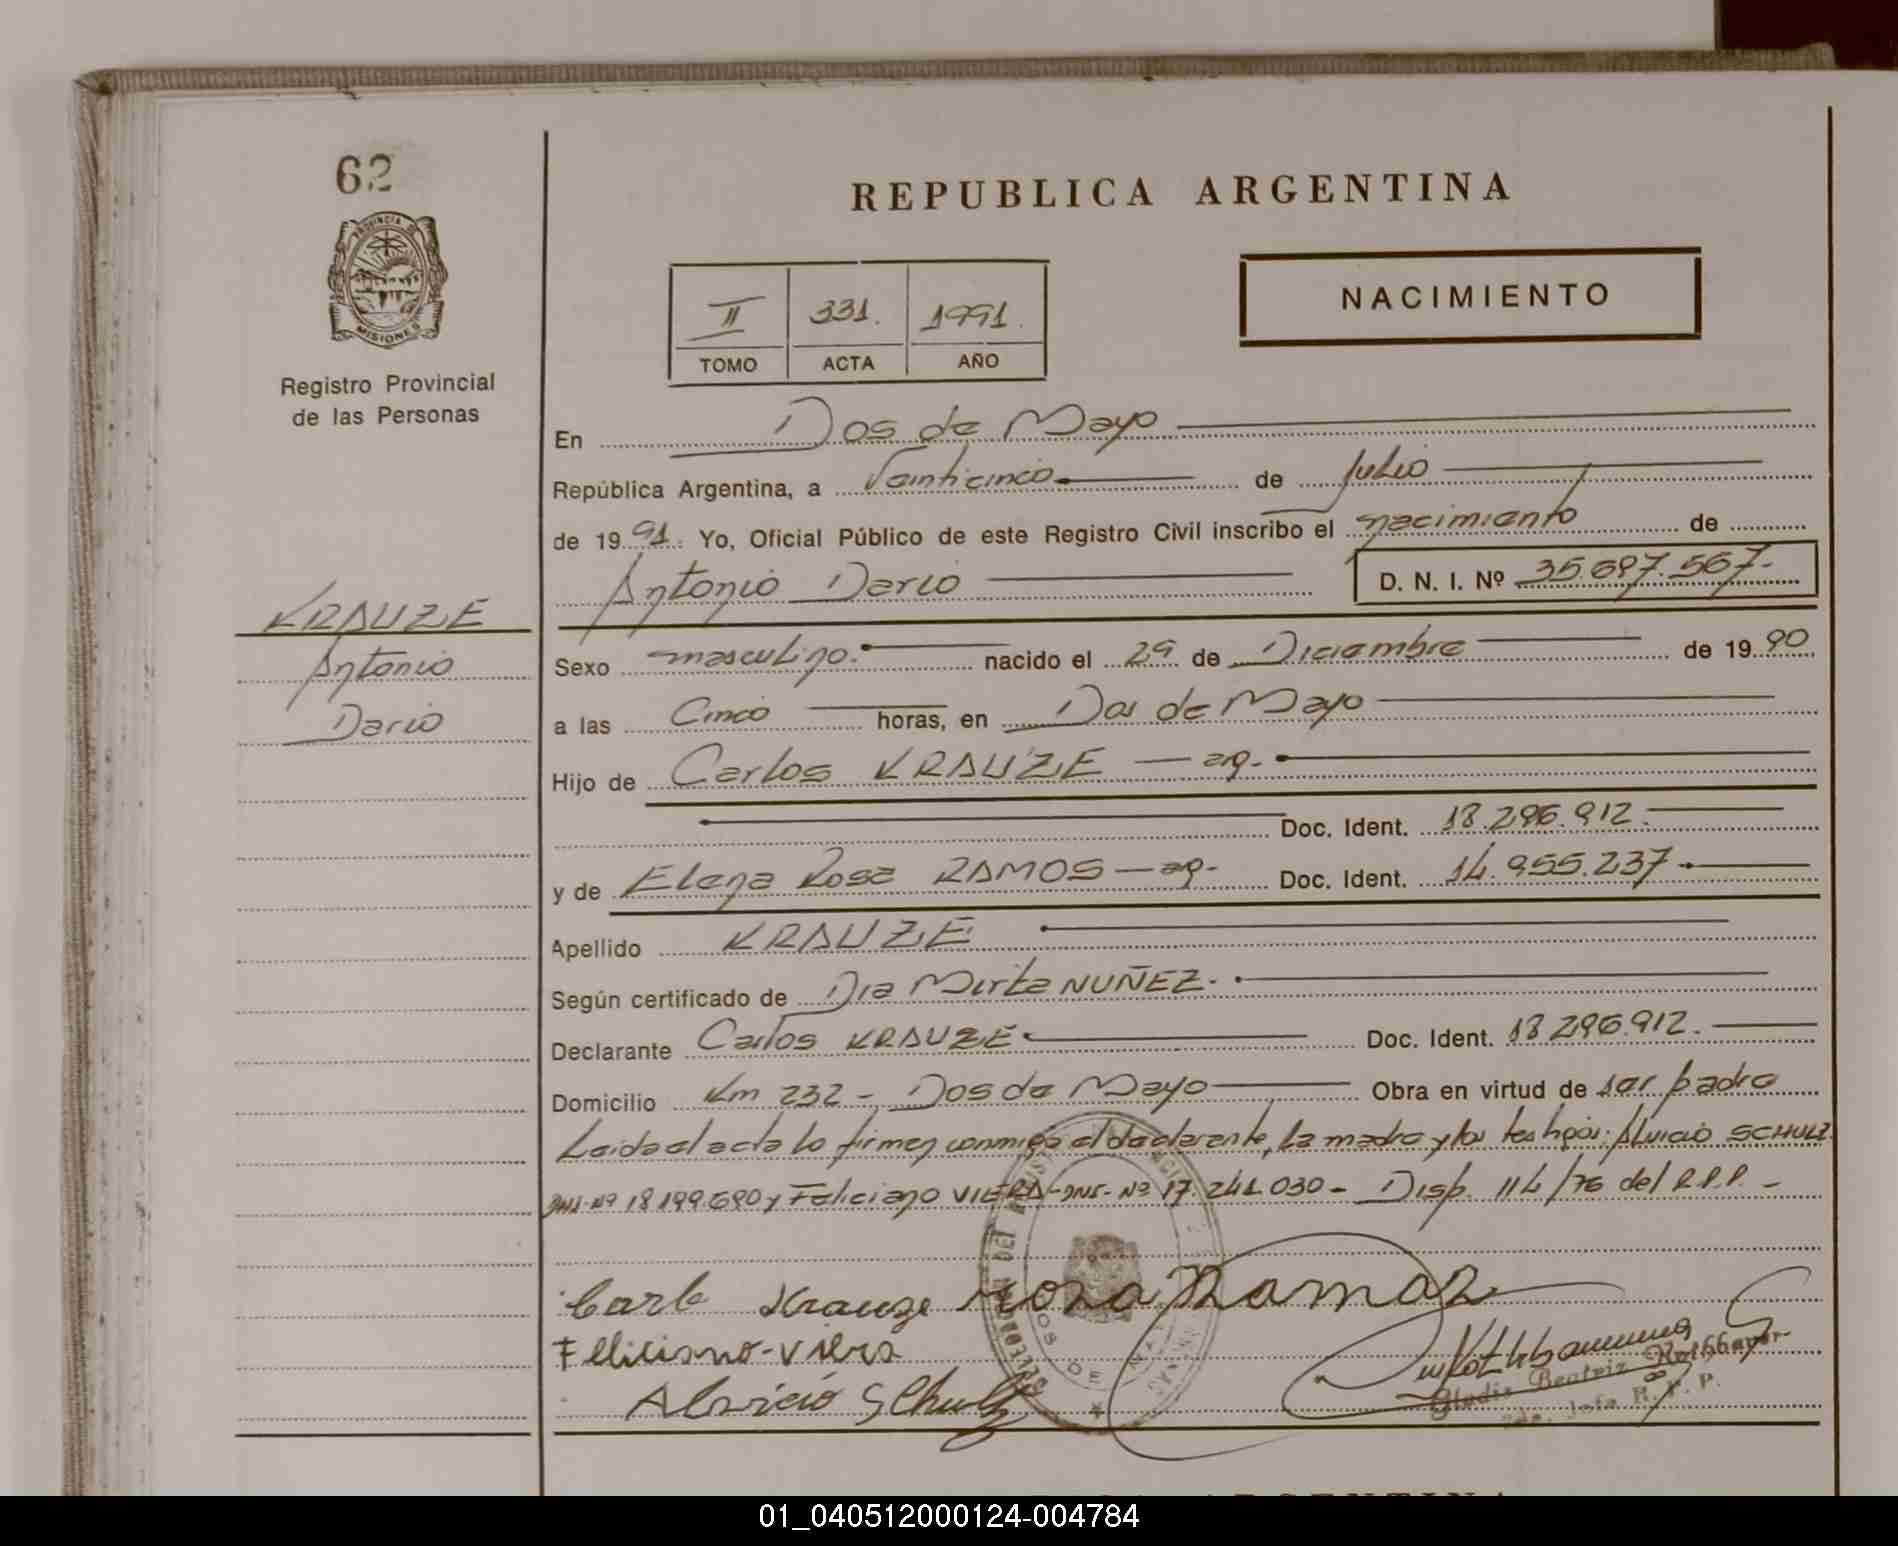 62
PROVINCIA DE
MISIONES
Registro Provincial
de las Personas
KRAUZE
Antonio
Dario
REPUBLICA ARGENTINA
NACIMIENTO
II 331. 1991.
TOMO ACTA AÑO
En Dos de Mayo
República Argentina, a Veinticinco de Julio
de 1991. Yo, Oficial Público de este Registro Civil inscribo el nacimiento de
Antonio Dario D. N. I. Nº 35.697.567.-
Sexo masculino.- nacido el 29 de Diciembre de 1990
a las Cinco horas, en Dos de Mayo
Hijo de Carlos KRAUZE — arg.-
Doc. Ident. 18.296.912.
y de Elena Rosa RAMOS — arg.- Doc. Ident. 14.955.237.-
Apellido KRAUZE
Según certificado de Dra Mirta NUÑEZ.-
Declarante Carlos KRAUZE Doc. Ident. 18.296.912.
Domicilio Km 232 - Dos de Mayo Obra en virtud de ser padre
Leida el acta lo firman conmigo el declarante, la madre y los testigos: Aluicio SCHULZ
DNI. Nº 18.199.690 y Feliciano VIERA - DNI. Nº 17.241.030 - Disp. 114/76 del R.P.P. -
Carlo Krauze rosa Ramos
Feliciano - Viera
Aluicio SChulz
Gladis Beatriz
R. P. P.
01_040512000124-004784